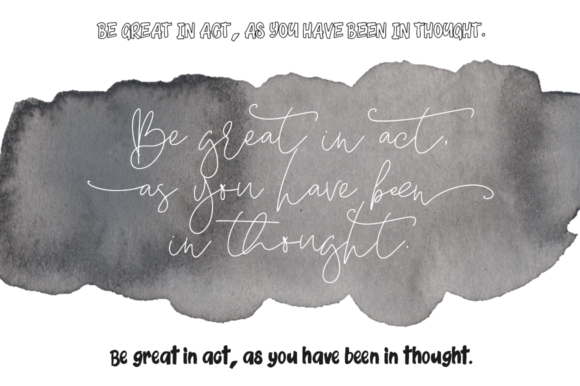 BE GREAT IN ACT, AS YOU HAVE BEEN IN THOUGHT.
Be great in act.
as you have been
in thought.
Be great in act, as you have been in thought.